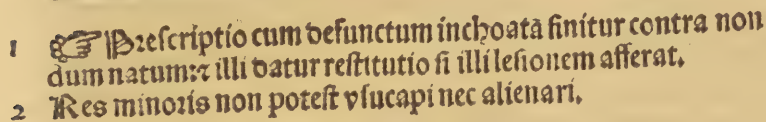 1 ☞ Prescriptio cum defunctum inchoatã finitur contra non
dum natum: ⁊ illi datur restitutio si illi lesionem afferat.
2 Res minoris non potest vsucapi nec alienari.